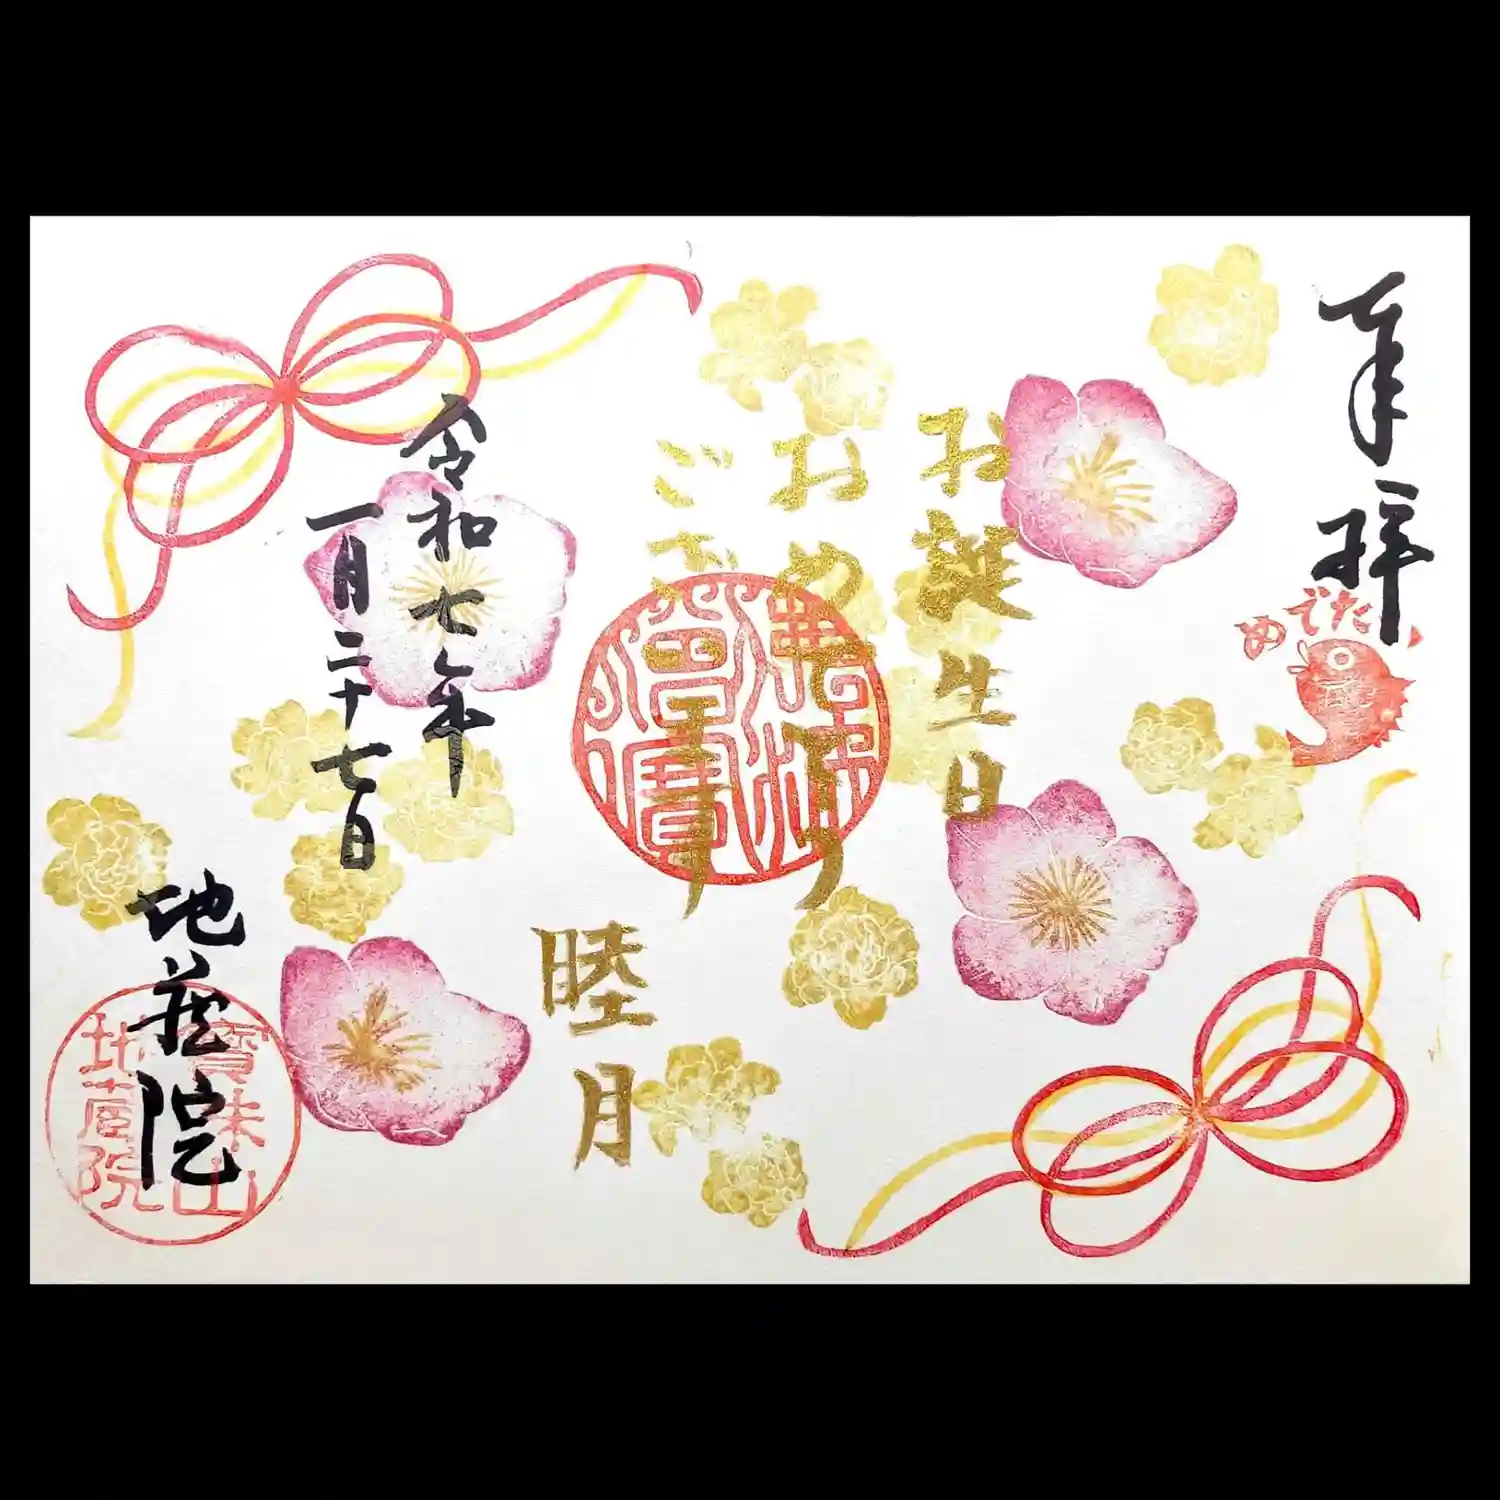 奉拝
めでたい
お誕生日
おめでとう
ございます
睦月
令和七年
一月二十七日
地蔵院
佛法僧寶
寶珠山
地蔵院